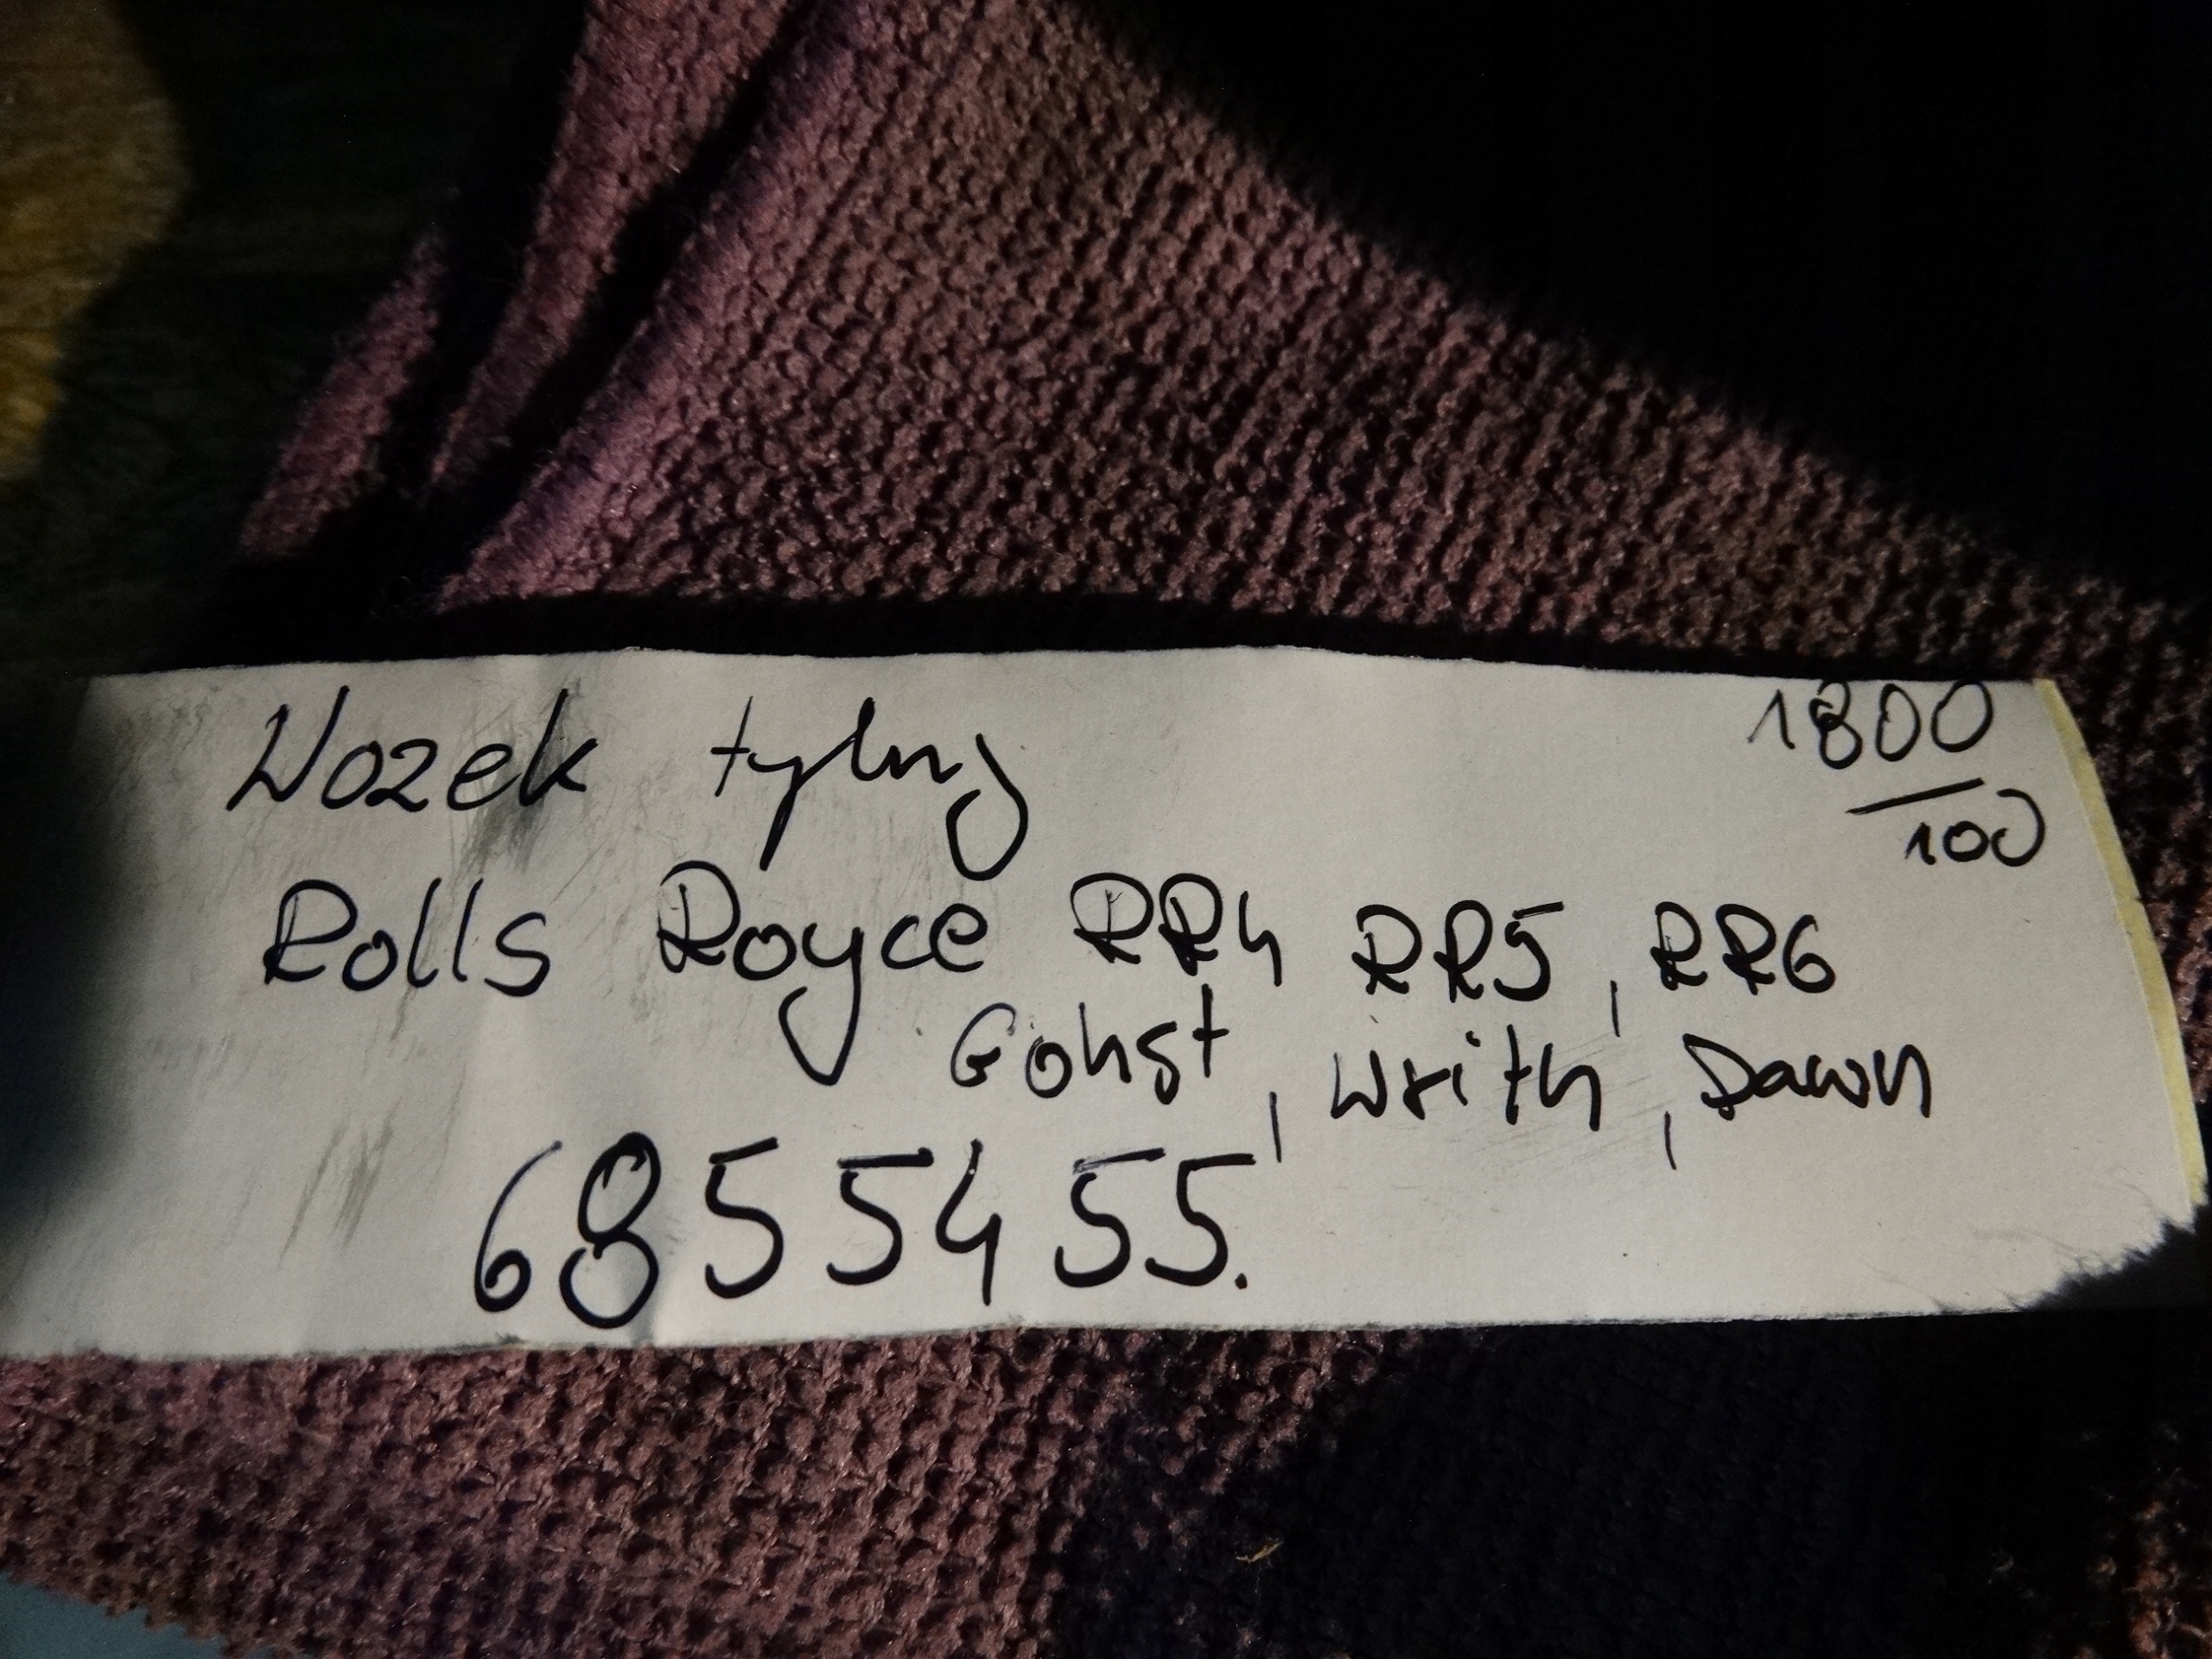 Wozek tylny
1800
100
Rolls Royce RR4 RR5, RR6
Gohst, Writh, Dawn
6855455.